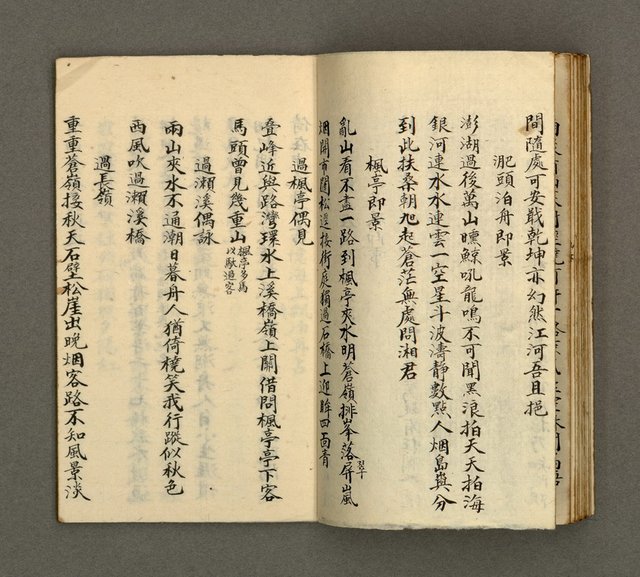 間隨處可安戢乾坤亦幻然江河吾且挹
淝頭泊舟即景
澎湖過後萬山曛鯨吼龍鳴不可聞黑浪拍天天拍海
銀河連水水連雲一空星斗波濤靜數點人烟島嶼分
到此扶桑朝旭起蒼茫無處問湘君
楓亭即景
亂山看不盡一路到楓亭夾水明蒼嶺排峯落屏嵐
翠
烟開市團松逕接街度橋過石橋上迎眸四面青
過楓亭偶見
叠峰近與路灣環水上溪橋嶺上關借問楓亭亭下客
馬頭曾見幾重山
楓亭多馬
以馱過客
過瀨溪偶詠
兩山夾水不通潮日暮舟人猶倚橈笑我行蹤似秋色
西風吹過瀨溪橋
過長嶺
重重蒼嶺接秋天石壁松崖出晚烟客路不知風景淡